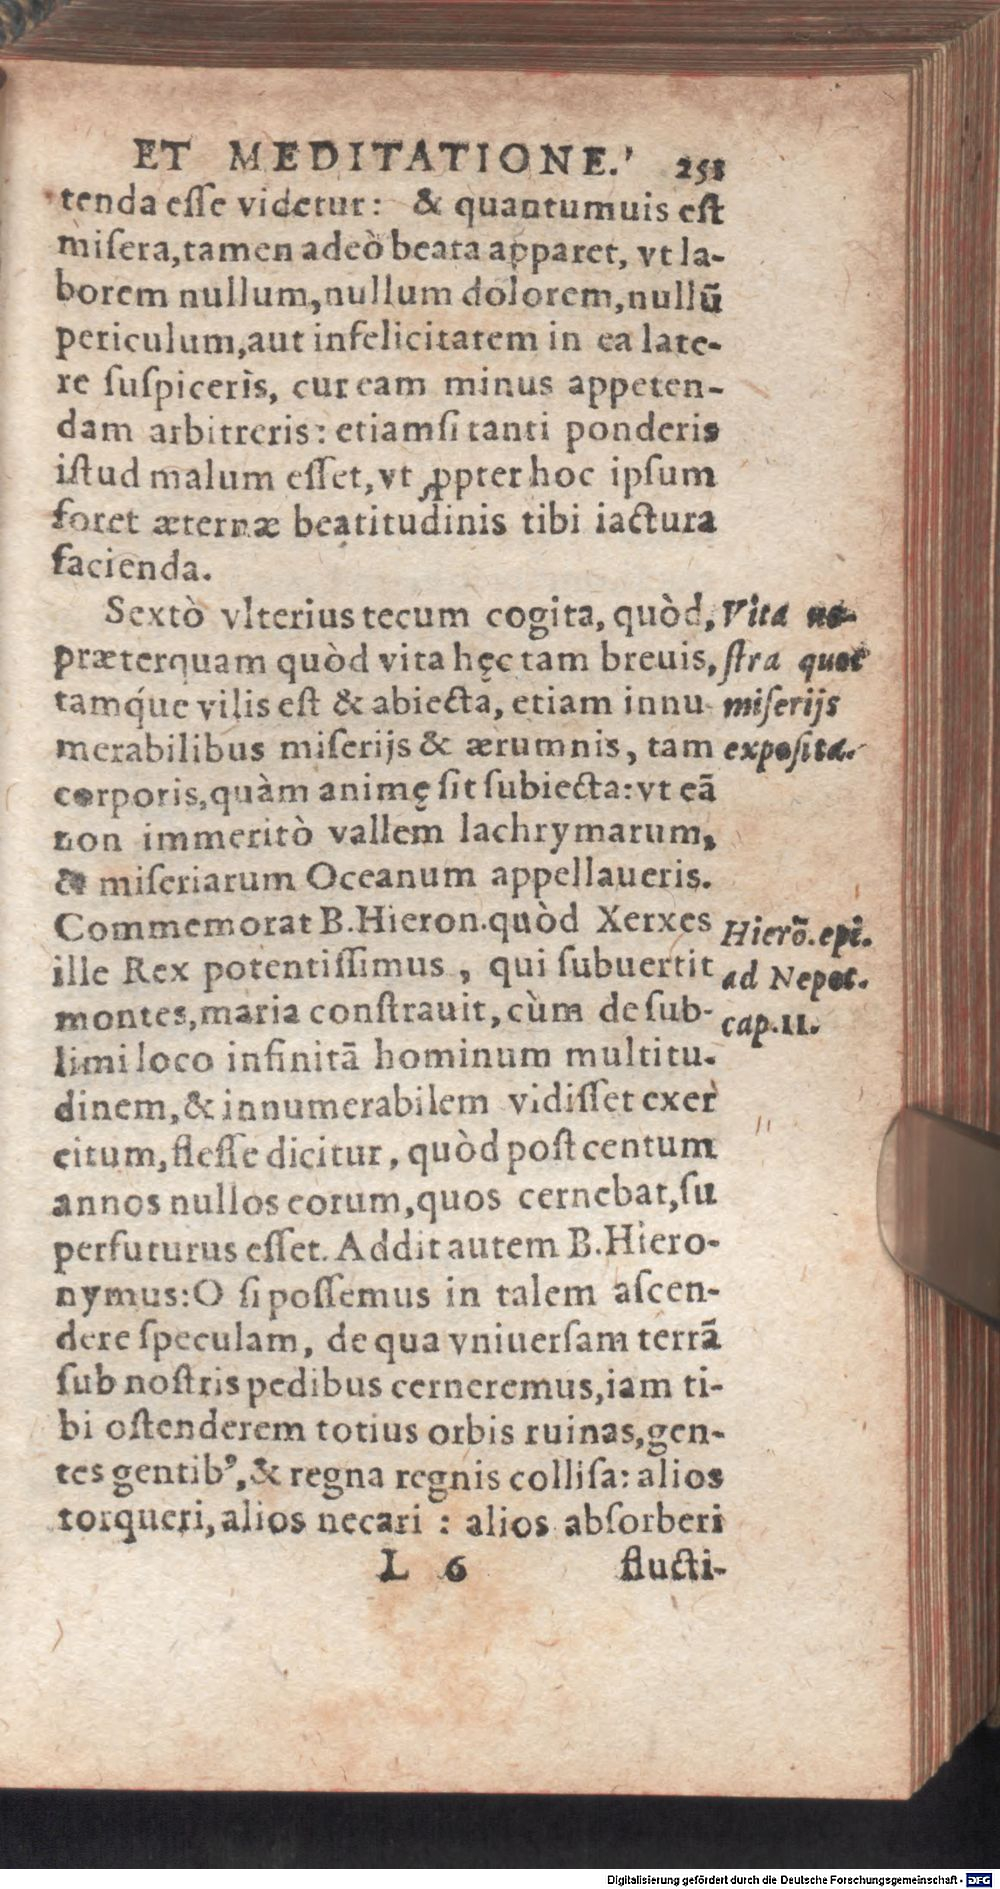 ET MEDITATIONE. 251
tenda eſſe videtur: & quantumuis eſt
miſera, tamen adeò beata apparet, vt la-
borem nullum, nullum dolorem, nullũ
periculum, aut infelicitatem in ea late-
re ſuſpiceris, cur eam minus appeten-
dam arbitreris: etiamſi tanti ponderis
iſtud malum eſſet, vt ꝓpter hoc ipſum
foret æternæ beatitudinis tibi iactura
facienda.
Sextò vlterius tecum cogita, quòd,
Vita no-
præterquam quòd vita hęc tam breuis,
ſtra quot
tamq́ue vilis eſt & abiecta, etiam innu-
miſerijs
merabilibus miſerijs & ærumnis, tam
expoſita.
corporis, quàm animę ſit ſubiecta: vt eã
non immeritò vallem lachrymarum,
& miſeriarum Oceanum appellaueris.
Commemorat B. Hieron. quòd Xerxes
Hierõ. epi.
ille Rex potentiſſimus, qui ſubuertit
ad Nepot.
montes, maria conſtrauit, cùm de ſub-
cap. 11.
limi loco infinitã hominum multitu-
dinem, & innumerabilem vidiſſet exer
citum, fleſſe dicitur, quòd poſt centum
annos nullos eorum, quos cernebat, ſu
perfuturus eſſet. Addit autem B. Hiero-
nymus: O ſi poſſemus in talem aſcen-
dere ſpeculam, de qua vniuerſam terrã
ſub noſtris pedibus cerneremus, iam ti-
bi oſtenderem totius orbis ruinas, gen-
tes gentibꝰ, & regna regnis colliſa: alios
torqueri, alios necari : alios abſorberi
L 6 flucti-
Digitalisierung gefördert durch die Deutsche Forschungsgemeinschaft - DFG